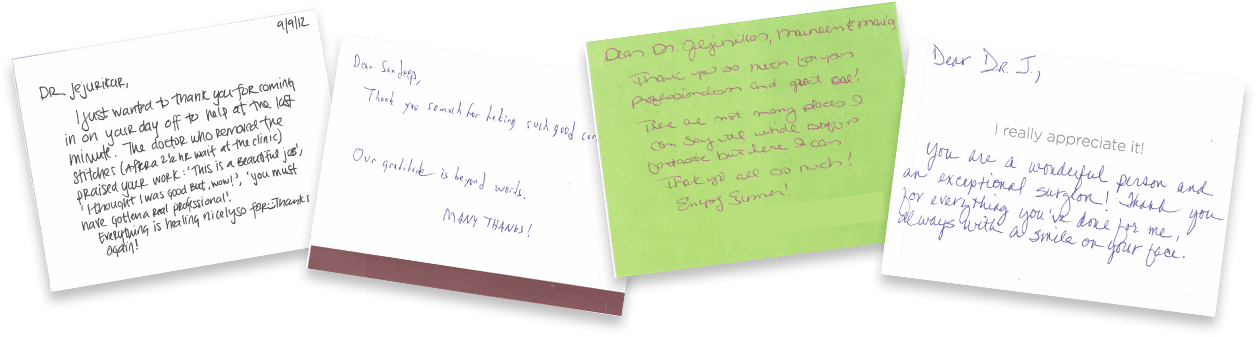 9/9/12
DR Jejurikar,
I just wanted to thank you for coming
in on your day off to help at the last
minute. The doctor who removed the
stitches (after a 2½ hr wait at the clinic)
praised your work: 'This is a beautiful job',
'I thought I was good but, wow!', 'you must
have gotten a real professional'.
Everything is healing nicely so far. Thanks
again!
Dear Sandeep,
Thank you so much for taking such good
Our gratitude is beyond words.
MANY THANKS!
Dear Dr. Jejurikar, Maureen & Maria,
Thank you so much for your
professionalism and great care!
There are not many places I
can say the whole staff is
fantastic but here I can
Thank you all so much!
Enjoy Summer!
Dear Dr. J.,
I really appreciate it!
You are a wonderful person and
an exceptional surgeon! Thank you
for everything you've done for me,
always with a smile on your face.